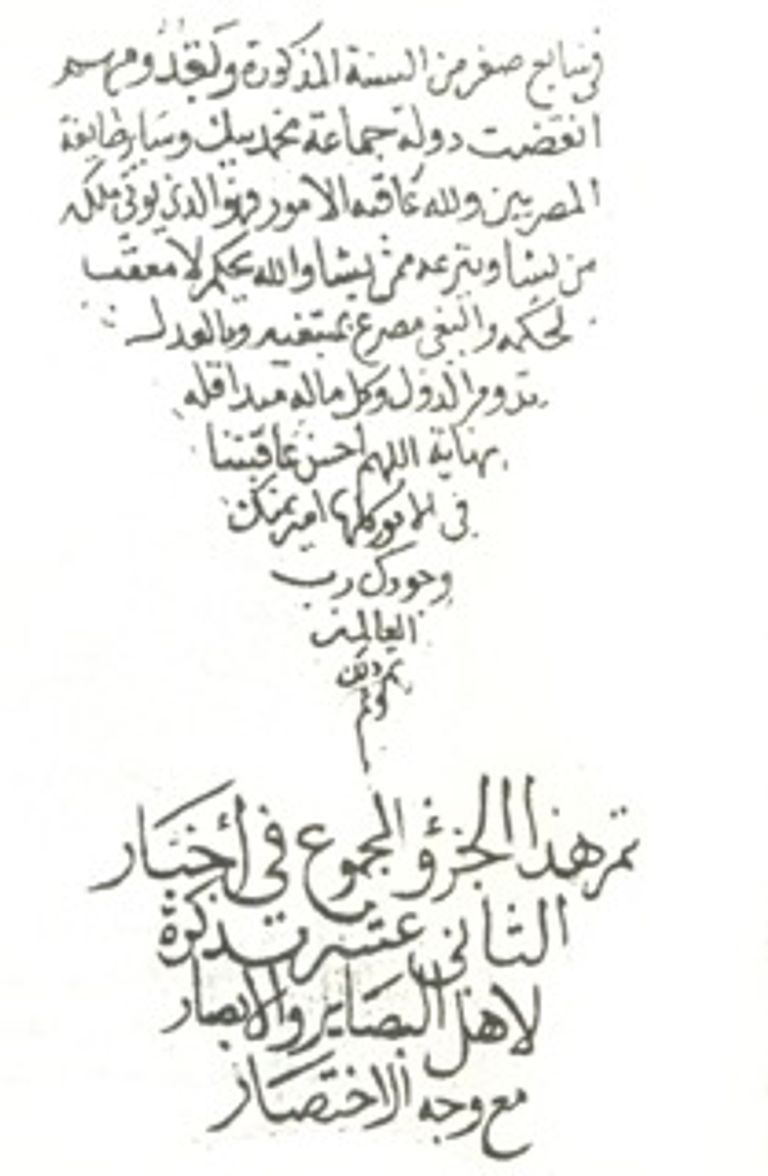 في سابع صفر من السنة المذكورة ولقدومهم
انقضت دولة جماعة محمد بيك وساير طايفة
المصريين ولله عاقبه الامور وهو الذي يوتي ملكه
من يشا وينزعه ممن يشا والله يحكم لا معقب
لحكمه والبغي مصرع مبتغيه وبالعدل
تدوم الدول وكل ماله مبدا فله
نهاية اللهم احسن عاقبتنا
في الامور كلها امين بمنك
وجودك رب
العالمين
تم ذلك
وتم
تم هذا الجزؤ المجموع في أخبار
الثاني عشر تذكرة
لاهل البصاير والابصار
مع وجه الاختصار